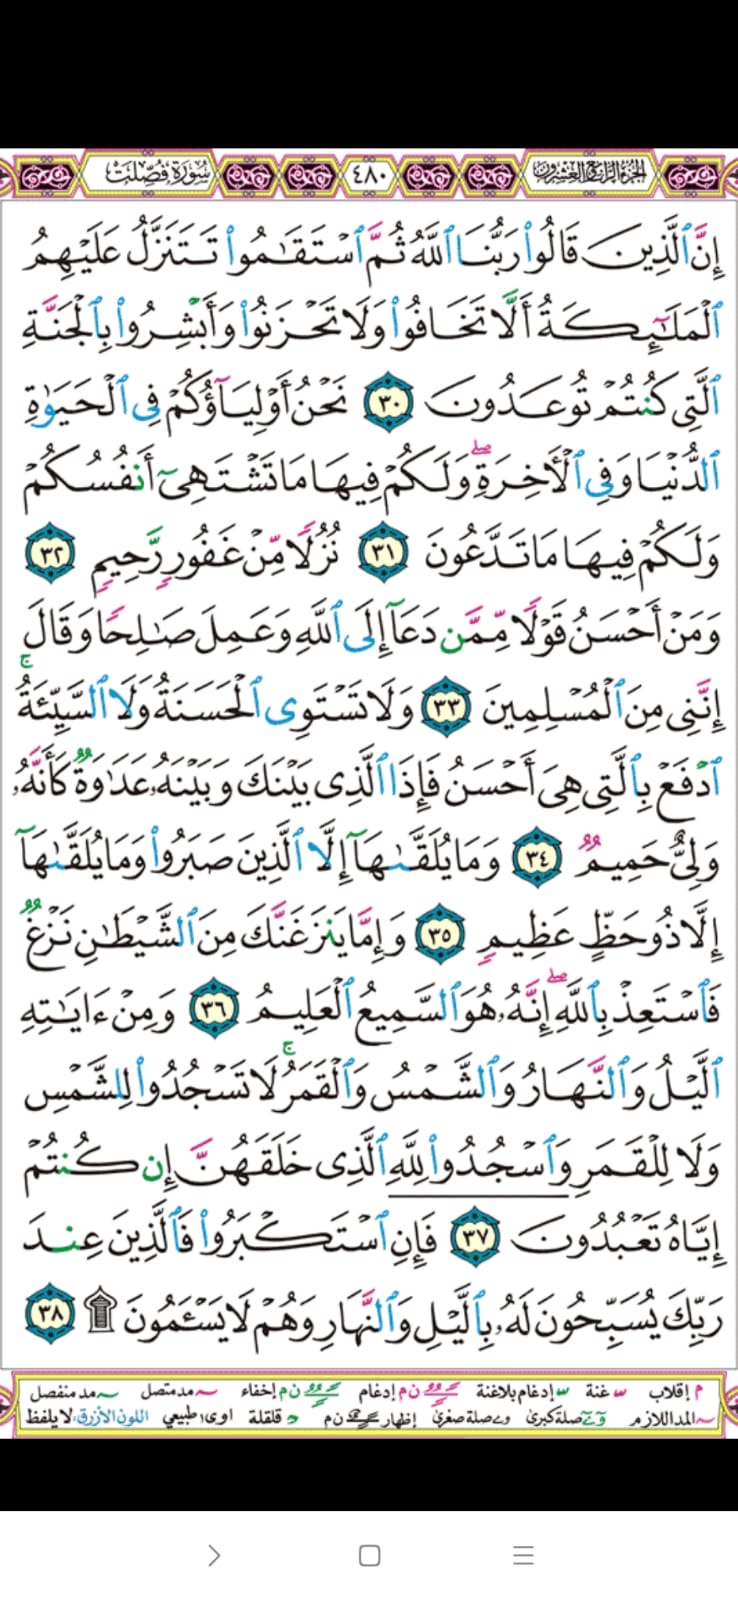 الجزء الرابع والعشرون ٤٨٠ سورة فصلت
إِنَّ ٱلَّذِينَ قَالُوا۟ رَبُّنَا ٱللَّهُ ثُمَّ ٱسْتَقَٰمُوا۟ تَتَنَزَّلُ عَلَيْهِمُ
ٱلْمَلَٰٓئِكَةُ أَلَّا تَخَافُوا۟ وَلَا تَحْزَنُوا۟ وَأَبْشِرُوا۟ بِٱلْجَنَّةِ
ٱلَّتِى كُنتُمْ تُوعَدُونَ ٣٠ نَحْنُ أَوْلِيَآؤُكُمْ فِى ٱلْحَيَوٰةِ
ٱلدُّنْيَا وَفِى ٱلْأَخِرَةِ ۖ وَلَكُمْ فِيهَا مَا تَشْتَهِىٓ أَنفُسُكُمْ
وَلَكُمْ فِيهَا مَا تَدَّعُونَ ٣١ نُزُلًا مِّنْ غَفُورٍ رَّحِيمٍ ٣٢
وَمَنْ أَحْسَنُ قَوْلًا مِّمَّن دَعَآ إِلَى ٱللَّهِ وَعَمِلَ صَٰلِحًا وَقَالَ
إِنَّنِى مِنَ ٱلْمُسْلِمِينَ ٣٣ وَلَا تَسْتَوِى ٱلْحَسَنَةُ وَلَا ٱلسَّيِّئَةُ ۚ
ٱدْفَعْ بِٱلَّتِى هِىَ أَحْسَنُ فَإِذَا ٱلَّذِى بَيْنَكَ وَبَيْنَهُۥ عَدَٰوَةٌ كَأَنَّهُۥ
وَلِىٌّ حَمِيمٌ ٣٤ وَمَا يُلَقَّىٰهَآ إِلَّا ٱلَّذِينَ صَبَرُوا۟ وَمَا يُلَقَّىٰهَآ
إِلَّا ذُو حَظٍّ عَظِيمٍ ٣٥ وَإِمَّا يَنزَغَنَّكَ مِنَ ٱلشَّيْطَٰنِ نَزْغٌ
فَٱسْتَعِذْ بِٱللَّهِ ۖ إِنَّهُۥ هُوَ ٱلسَّمِيعُ ٱلْعَلِيمُ ٣٦ وَمِنْ ءَايَٰتِهِ
ٱلَّيْلُ وَٱلنَّهَارُ وَٱلشَّمْسُ وَٱلْقَمَرُ ۚ لَا تَسْجُدُوا۟ لِلشَّمْسِ
وَلَا لِلْقَمَرِ وَٱسْجُدُوا۟ لِلَّهِ ٱلَّذِى خَلَقَهُنَّ إِن كُنتُمْ
إِيَّاهُ تَعْبُدُونَ ٣٧ فَإِنِ ٱسْتَكْبَرُوا۟ فَٱلَّذِينَ عِندَ
رَبِّكَ يُسَبِّحُونَ لَهُۥ بِٱلَّيْلِ وَٱلنَّهَارِ وَهُمْ لَا يَسْـَٔمُونَ ۩ ٣٨
م إقلاب غنة إدغام بلاغنة ن م إدغام ن م إخفاء مد متصل مد منفصل
المد اللازم صلة كبرى صلة صغرى إظهار ن م قلقلة اوى طبيعي اللون الأزرق لا يلفظ